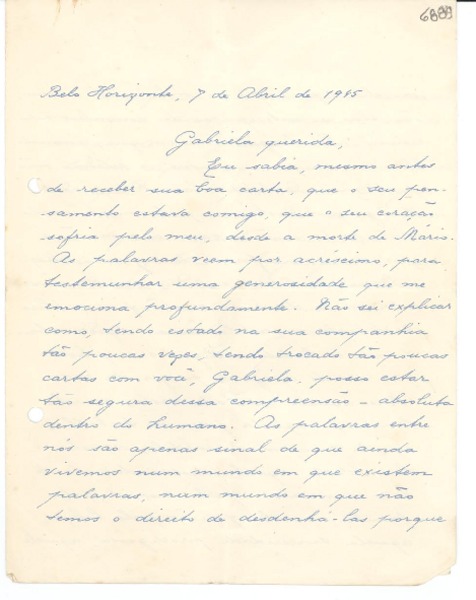 6889
Belo Horizonte, 7 de Abril de 1945
Gabriela querida,
Eu sabia, mesmo antes
de receber sua boa carta, que o seu pen-
samento estava comigo, que o seu coração
sofria pelo meu, desde a morte de Mário.
As palavras veem por acrescimo, para
testemunhar uma generosidade que me
emociona profundamente. Não sei explicar
como, tendo estado na sua companhia
tão poucas vezes, tendo trocado tão poucas
cartas com você, Gabriela, posso estar
tão segura dessa compreensão - absoluta
dentro do humano. As palavras entre
nós são apenas sinal de que ainda
vivemos num mundo em que existem
palavras, num mundo em que não
temos o direito de desdenhá-las porque